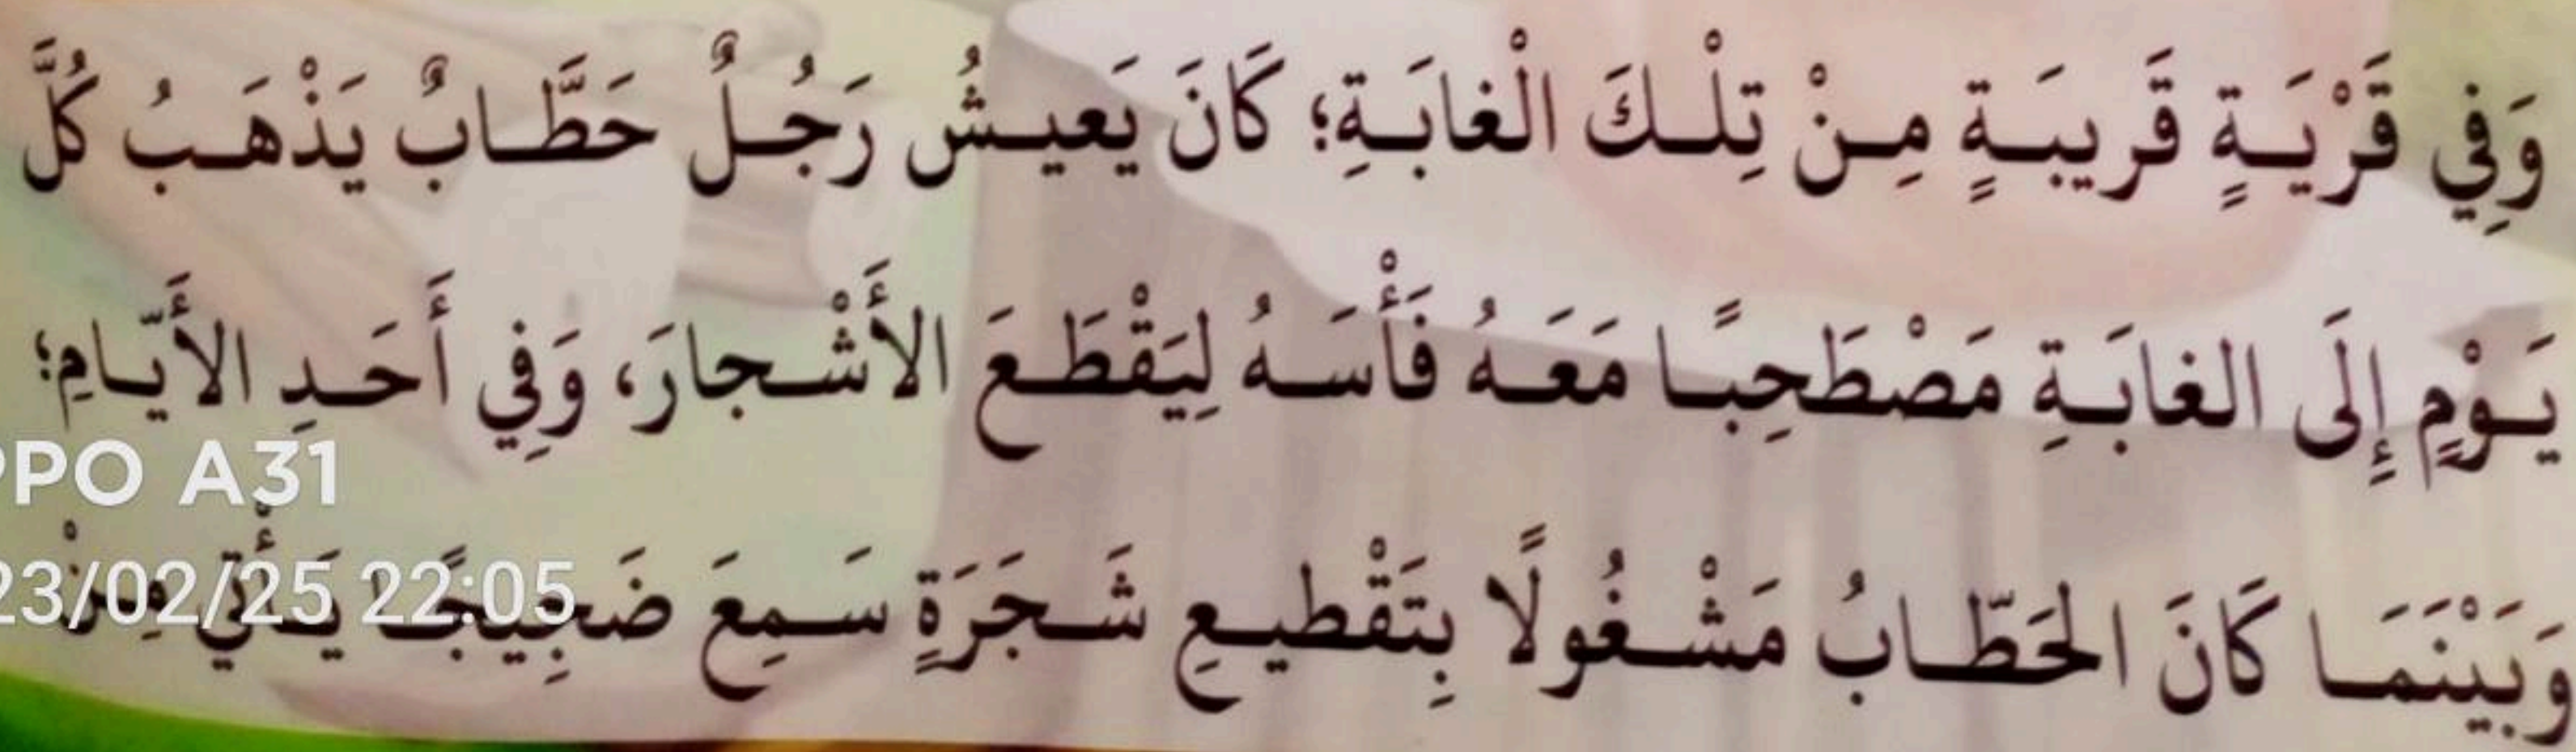 وَفِي قَرْيَةٍ قَرِيبَةٍ مِنْ تِلْكَ الْغابَةِ؛ كَانَ يَعيشُ رَجُلٌ حَطَّابٌ يَذْهَبُ كُلَّ
يَوْمٍ إِلَى الغابَةِ مَصْطَحِبًا مَعَهُ فَأْسَهُ لِيَقْطَعَ الأَشْجارَ، وَفِي أَحَدِ الأَيّامِ؛
PPO A31
وَبَيْنَمَا كَانَ الحَطّابُ مَشْغُولًا بِتَقْطيعِ شَجَرَةٍ سَمِعَ ضَجِيجًا يَأْتِي مِنْ
23/02/25 22:05